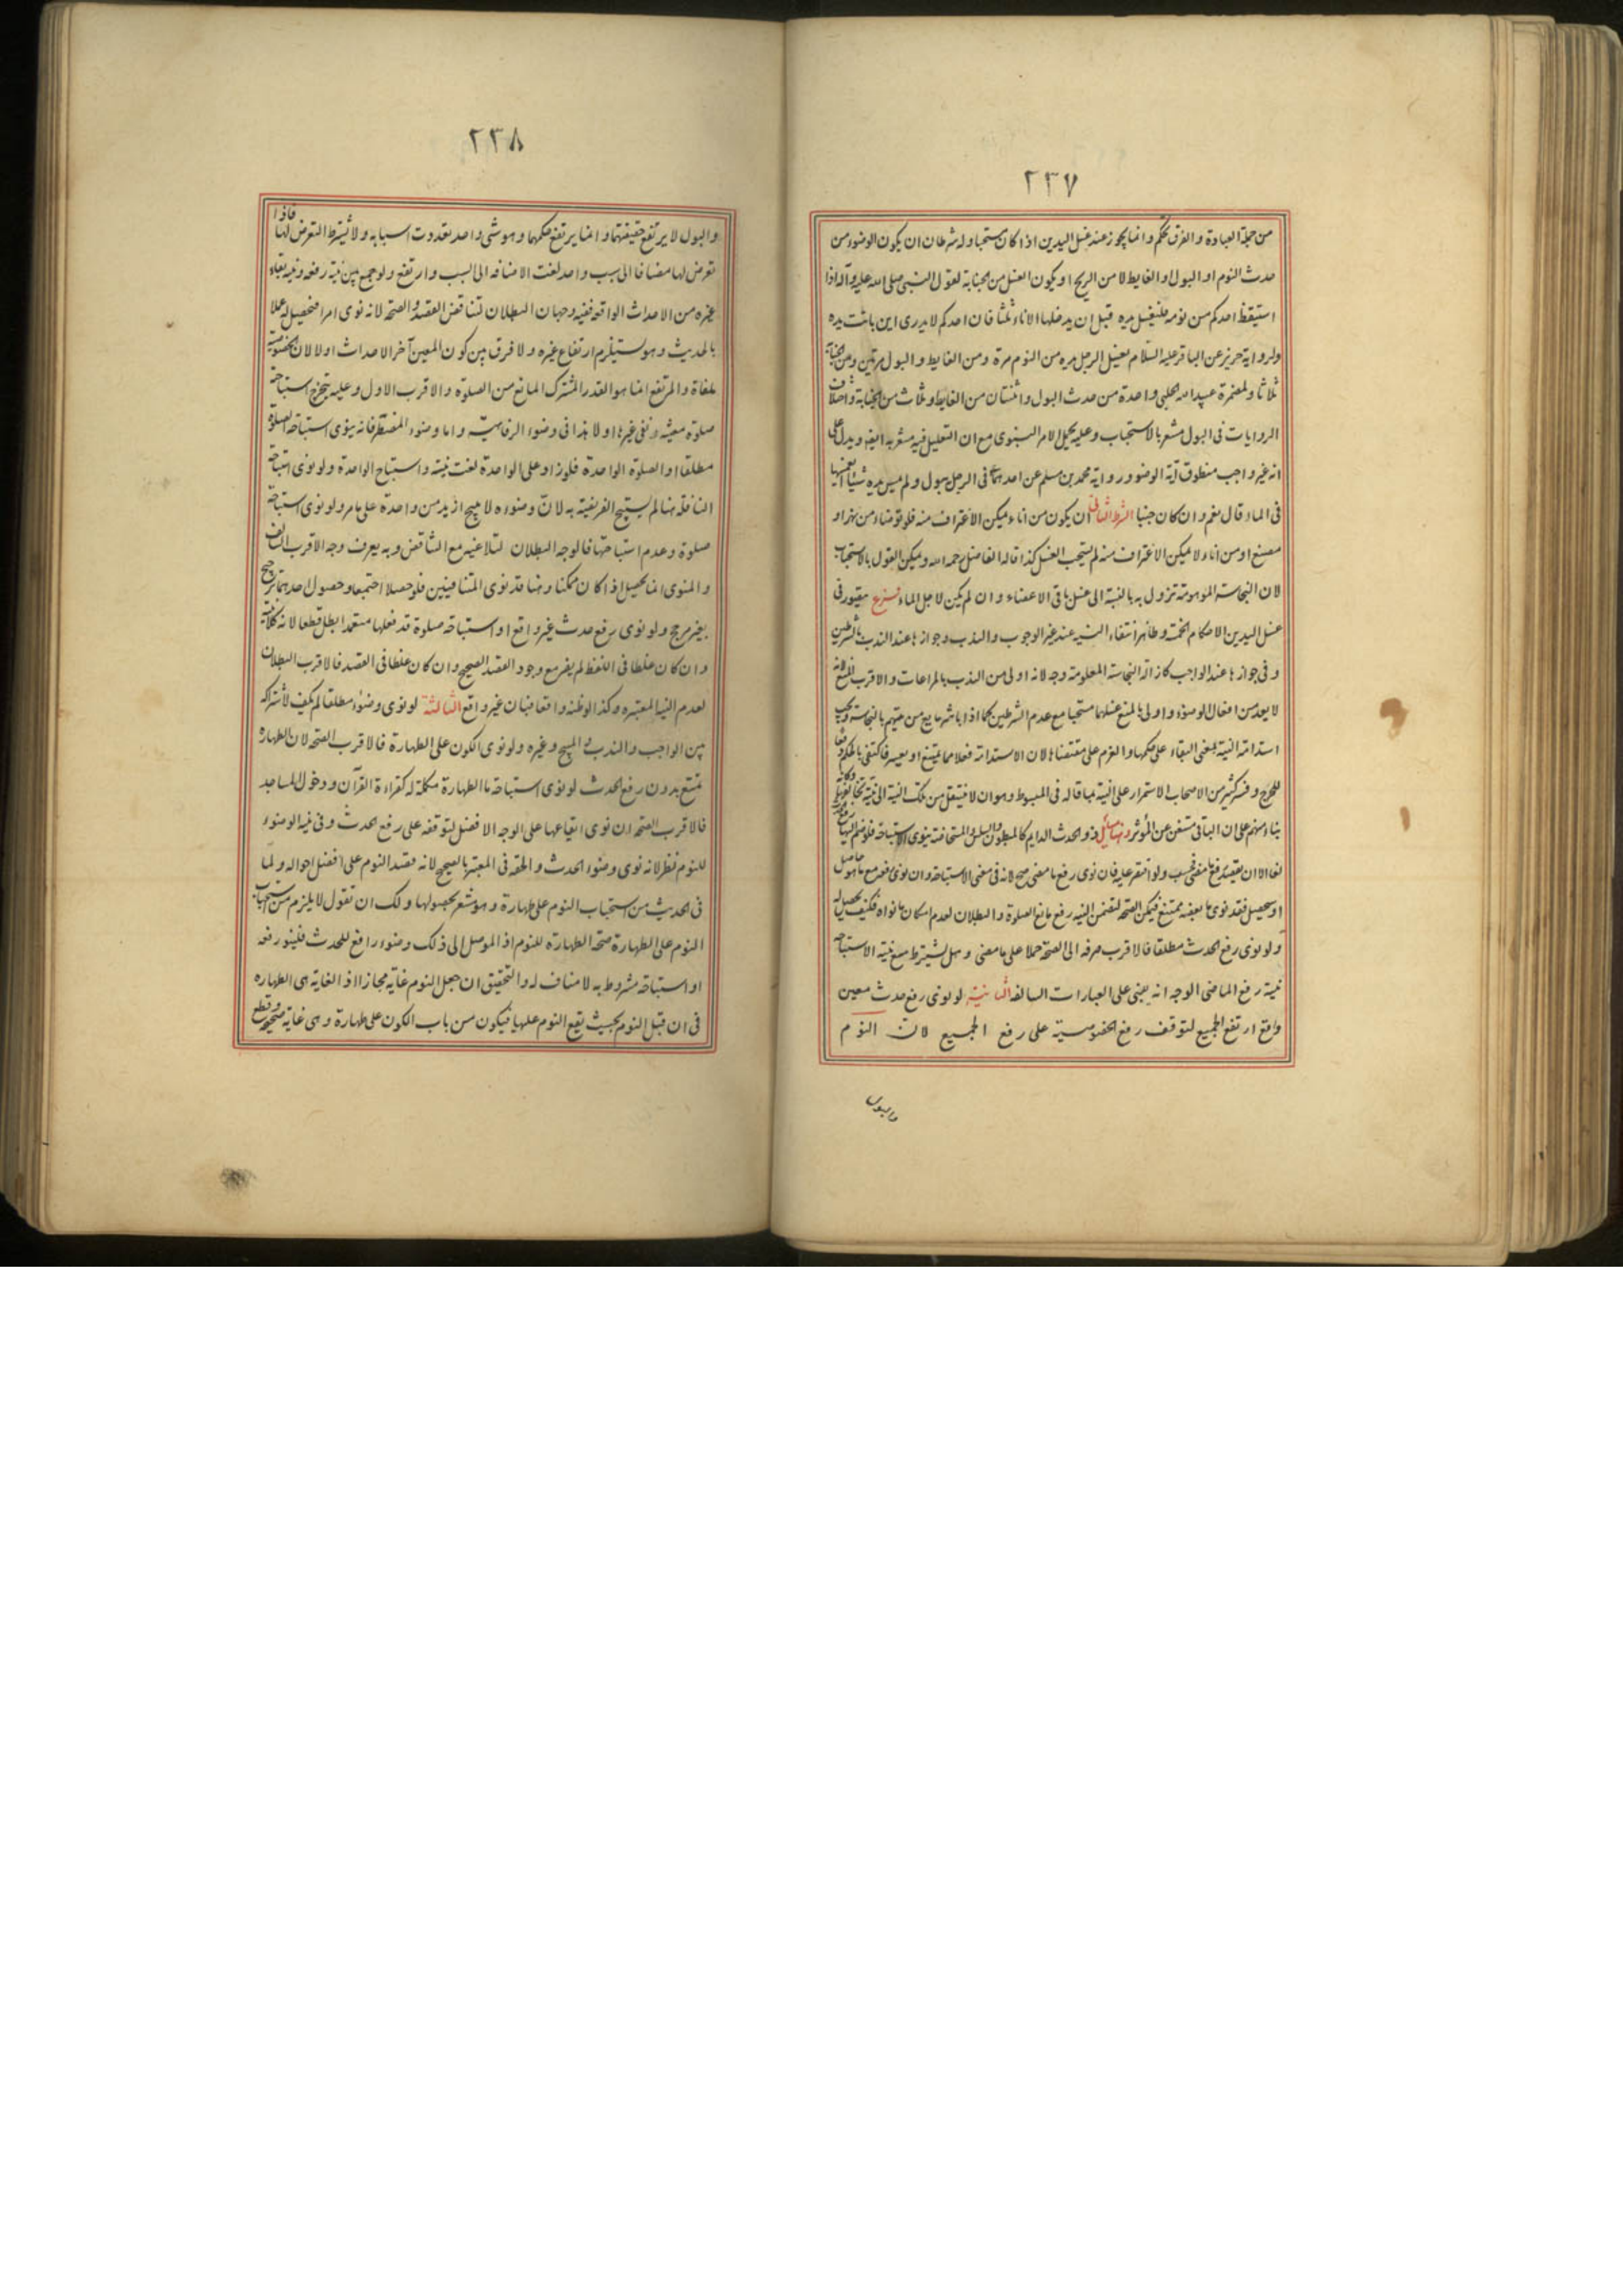 ٢٣٧
من جملة العبادة والفرق تحكم وانما يجوز عند غسل اليدين اذا كان مستحبا وله شرطان ان يكون الوضوء من
حدث النوم او البول او الغايط لا من الريح او يكون الغسل من الجنابة لقول النبى صلى الله عليه وآله اذا
استيقظ احدكم من نومه فليغسل يده قبل ان يدخلها الاناء ثلثا فان احدكم لا يدرى اين باتت يده
ولرواية حريز عن الباقر عليه السلام يغسل الرجل يده من النوم مرة ومن الغايط والبول مرتين ومن الجنابة
ثلاثا ولمضمرة عبيد الله الحلبى واحدة من حدث البول واثنتان من الغايط وثلاث من الجنابة واختلاف
الروايات فى البول مشعر بالاستحباب وعليه يحمل الامر النبوى مع ان التعليل فيه مشعر به ايضا ويدل على
انه غير واجب منطوق آية الوضوء ورواية محمد بن مسلم عن احدهما ع فى الرجل يبول ولم يمس يده شيئا ايغمسها
فى الماء قال نعم وان كان جنبا الشرط الثانى ان يكون من اناء يمكن الاغتراف منه فلو توضاء من نهر او
مصنع او من اناء لا يمكن الاغتراف منه لم يستحب الغسل كذا قاله الفاضل رحمه الله ويمكن القول بالاستحباب
لان النجاسة الموهومة تزول به بالنسبة الى غسل باقى الاعضاء وان لم يكن لاجل الماء فرع يتصور فى
غسل اليدين الاحكام الخمسة وظاهرا انتفاء النية عند غير الوجوب والندب وجوازها عند الندب بالشرطين
وفى جوازها عند الواجب كازالة النجاسة المعلومة وجه لانه اولى من الندب بالمراعات والاقرب المنع لانه
لا يعد من افعال الوضوء واولى بالمنع غسلهما مستحبا مع عدم الشرطين كما اذا باشر مايع من يتهم بالنجاسة ويجب
استدامة النية بمعنى البقاء على حكمها والعزم على مقتضاها لان الاستدامة فعلا مما يمتنع او يعسر فاكتفى بالحكم دفعا
للحرج وفسر كثير من الاصحاب الاستمرار على النية بما قاله فى المبسوط وهو ان لا ينتقل من تلك النية الى نية تخالفها وكانه
بناء منهم على ان الباقى مستغن عن المؤثر وهنا مسائل ذو الحدث الدايم كالمبطون والسلس والمستحاضة ينوى الاستباحة فلو ضم اليها رفع الحدث
لغا الا ان يقصد رفع ما مضى فحسب ولو اقتصر عليه فان نوى رفع ما مضى صح لانه فى معنى الاستباحة وان نوى رفعه مع ما هو حاصل
او سيحصل فقد نوى ما بعضه ممتنع فيمكن الصحة لتضمن النية رفع مانع الصلوة والبطلان لعدم امكان ما نواه فكيف يحصل له
ولو نوى رفع الحدث مطلقا فالاقرب صرفه الى الصحة حملا على ما مضى وهل يشترط مع نية الاستباحة
نية رفع الماضى الوجه انه يبنى على العبارات السالفة الثانية لو نوى رفع حدث معين
واقع ارتفع الجميع لتوقف رفع الخصوصية على رفع الجميع لان النوم
والبول
٢٣٨
والبول لا يرتفع حقيقتهما وانما يرتفع حكمهما وهو شى واحد تعددت اسبابه ولا يشترط التعرض لها فاذا
تعرض لها مضافا الى سبب واحد لغت الاضافة الى السبب وارتفع ولو جمع بين نية رفعه ونية بقاء
غيره من الاحداث الواقعة ففيه وجهان البطلان لتناقض القصد والصحة لانه نوى امرا فتحصيل له عملا
بالحديث وهو يستلزم ارتفاع غيره ولا فرق بين كون المعين آخر الاحداث او لا لان الخصوصية
ملغاة والمرتفع انما هو القدر المشترك المانع من الصلوة والاقرب الاول وعليه يتخرج استباحة
صلوة معينة ونفى غيرها او لا هذا فى وضوء الرفاهية واما وضوء المضطر فانه ينوى استباحة الصلوة
مطلقا او الصلوة الواحدة فلو زاد على الواحدة لغت نيته واستباح الواحدة ولو نوى استباحة
النافلة هنا لم يستبح الفريضة به لان وضوءه لا يبيح ازيد من واحدة على ما مر ولو نوى استباحة
صلوة وعدم استباحتها فالوجه البطلان لتلاعبه مع التناقض وبه يعرف وجه الاقرب السالف
والمنوى انما يحصل اذا كان ممكنا وهنا قد نوى المتنافيين فلو حصلا اجتمعا وحصول احدهما ترجيح
بغير مرجح ولو نوى رفع حدث غير واقع او استباحة صلوة قد فعلها متعمدا بطل قطعا لانه كلا نية
وان كان غلطا فى اللفظ لم يضر مع وجود القصد الصحيح وان كان غلطا فى القصد فالاقرب البطلان
لعدم النية المعتبرة وكذا لو ظنه واقعا فبان غير واقع الثالثة لو نوى وضوء مطلقا لم يكف لاشتراكه
بين الواجب والندب والمبيح وغيره ولو نوى الكون على الطهارة فالاقرب الصحة لان الطهارة
يمتنع بدون رفع الحدث لو نوى استباحة ما الطهارة مكملة له كقراءة القرآن ودخول المساجد
فالاقرب الصحة ان نوى ايقاعها على الوجه الافضل لتوقفه على رفع الحدث وفى نية الوضوء
للنوم نظر لانه نوى وضوء الحدث والحقه فى المعتبر بالصحيح لانه قصد النوم على افضل احواله ولما
فى الحديث من استحباب النوم على طهارة وهو مشعر بحصولها ولك ان تقول لا يلزم من استحباب
النوم على الطهارة صحة الطهارة للنوم اذ الموصل الى ذلك وضوء رافع للحدث فلينو رفعه
او استباحة مشروط به لا مناف له والتحقيق ان جعل النوم غاية مجازا اذ الغاية هى الطهارة
فى ان قبل النوم بحيث يقع النوم عليها فيكون من باب الكون على طهارة وهى غاية صحيحة وقطع